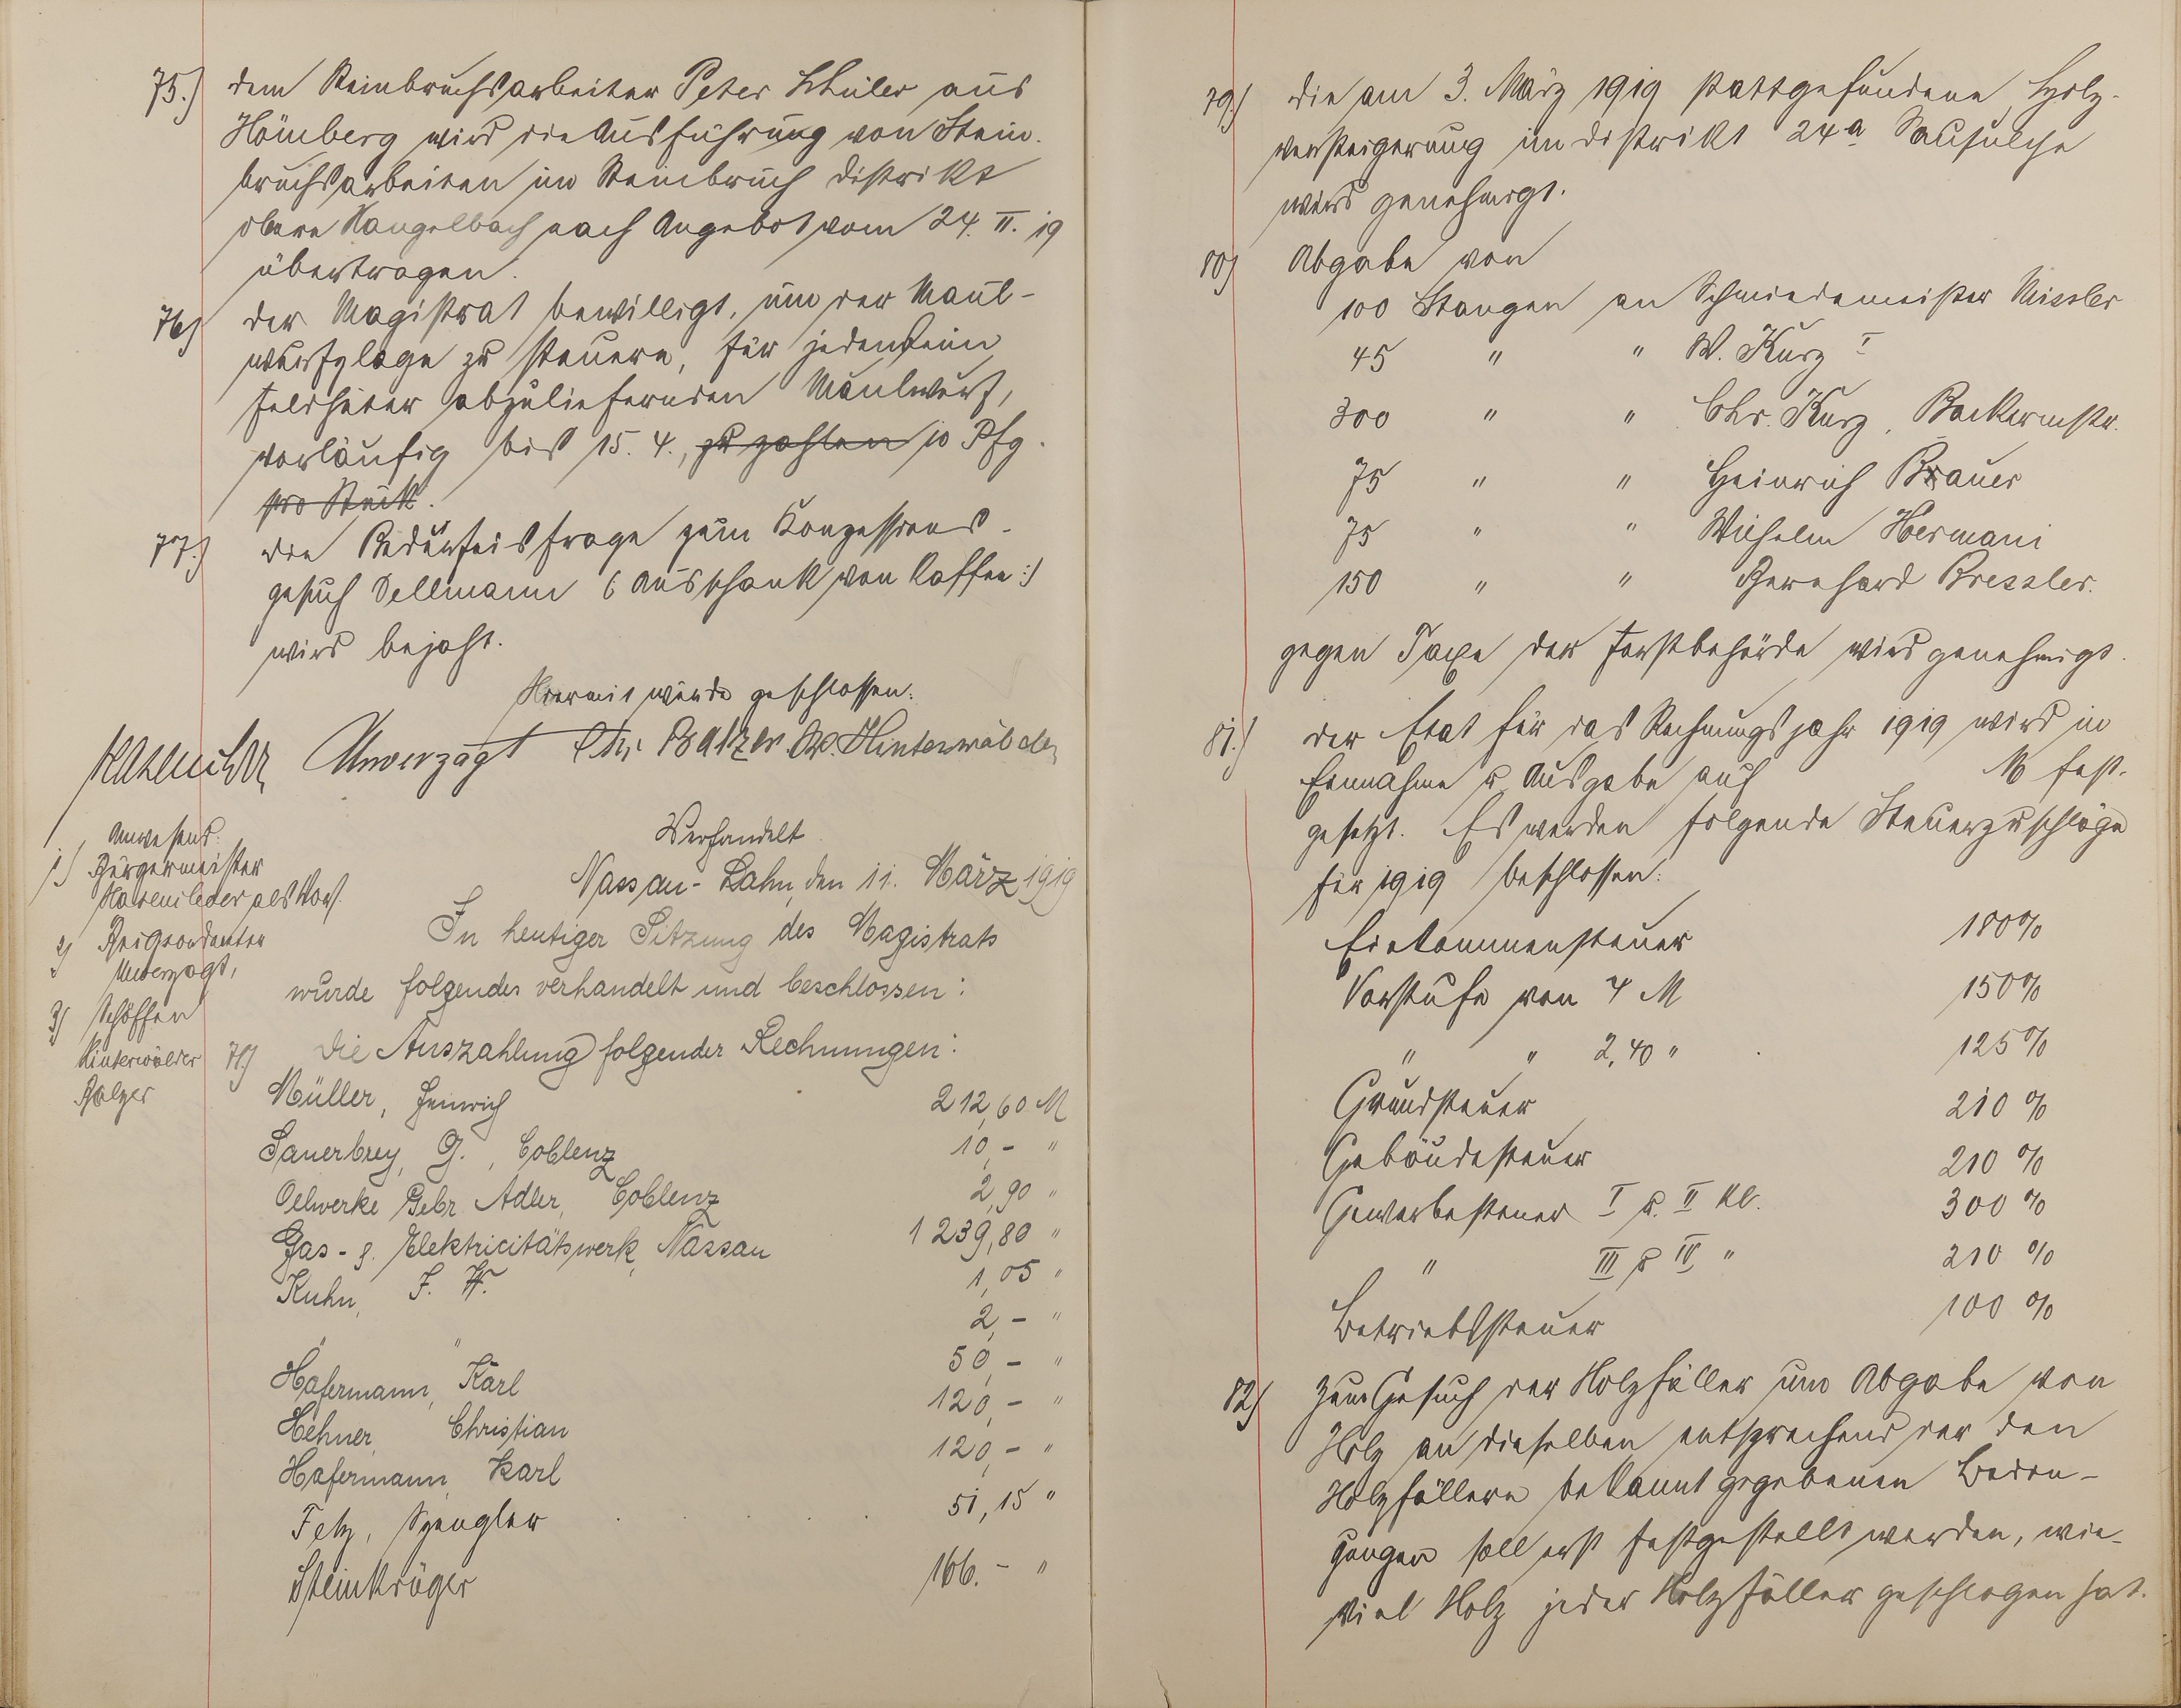 75.) dem Steinbruchsarbeiter Peter Schuler aus
Hömberg wird die Ausführung von Stein-
bruchsarbeiten im Steinbruch Distrikt
obere Hangelbach nach Angebot vom 24. II. 19
übertragen.
76) der Magistrat bewilligt, um der Maul-
wurfplage zu steuern, für jeden beim
Feldhüter abzuliefernden Maulwurf,
vorläufig bis 15. 4., zu zahlen 10 Pfg.
pro Stück.
77.) die Bedürfnisfrage zum Konzessions-
gesuch Sellmann (Ausschank von Kaffee:)
wird bejaht.
Hiermit wurde geschlossen.
Hasenclever Unverzagt Chr. Balzer. W. Hinterwälder
Anwesend:
1) Bürgermeister
Hasenclever als Vors.
2) Beigeordneter
Unverzagt,
3) Schöffen
Hinterwälder
Balzer
Verhandelt
Nassau-Lahn, den 11. März 1919
In heutiger Sitzung des Magistrats
wurde folgendes verhandelt und beschlossen:
78) Die Auszahlung folgender Rechnungen:
Müller, Heinrich 212,60 M
Sauerbrey, G., Coblenz 10,- "
Oelwerke Gebr. Adler, Coblenz 2,90 "
Gas- u. Elektricitätswerk, Nassau 1 239,80 "
Kuhn, F. W. 1,05 "
" " 2,- "
Hafermann, Karl 50,- "
Hehner, Christian 120,- "
Hafermann, Karl 120,- "
Fetz, Spengler 51,15 "
Steinkrüger 166.- "
79) die am 3. März 1919 stattgefundene Holz-
versteigerung im Distrikt 24a Sausulche
wird genehmigt.
80) Abgabe von
100 Stangen an Schmiedemeister Missler
45 " " W. Kurz I
300 " " Chr. Kurz, Backermstr.
75 " " Heinrich Brauer
75 " " Wilhelm Hermani
150 " " Bernhard Bressler.
gegen Taxe der Forstbehörde wird genehmigt.
81.) der Etat für das Rechnungsjahr 1919 wird in
Einnahme u. Ausgabe auf M fest-
gesetzt. Es werden folgende Steuerzuschläge
für 1919 beschlossen:
Einkommensteuer 180%
Vorstufe von 4 M 150%
" " 2,40 " 125%
Grundsteuer 210 %
Gebäudesteuer 210 %
Gewerbesteuer I u. II Kl. 300 %
" III u IV " 210 %
Betriebssteuer 100 %
82) Zum Gesuch der Holzfäller um Abgabe von
Holz an dieselben entsprechend der den
Holzfällern bekannt gegebenen Bedin-
gungen soll erst festgestellt werden, wie-
viel Holz jeder Holzfäller geschlagen hat.